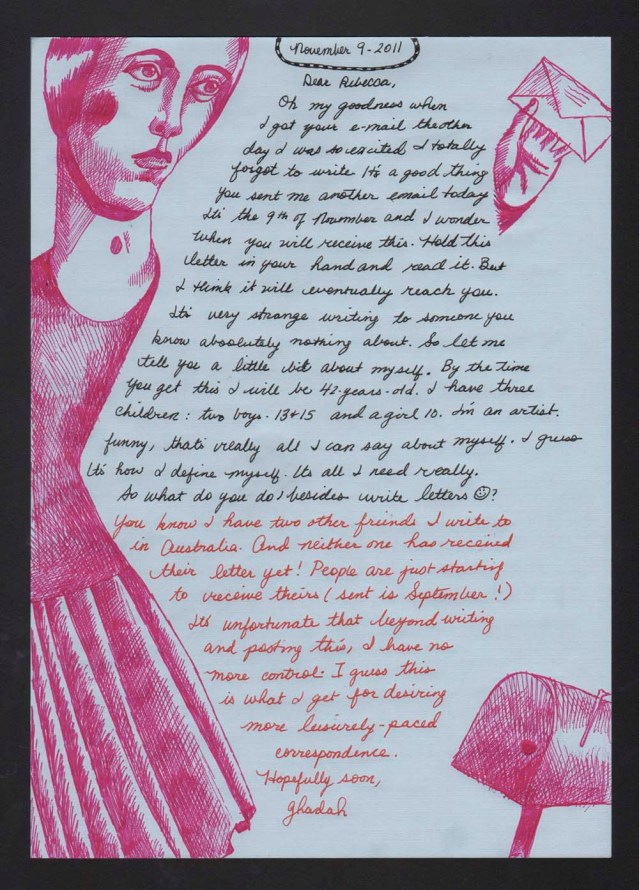 November 9-2011
Dear Rebecca,
Oh my goodness when
I got your e-mail the other
day I was so excited I totally
forgot to write. It's a good thing
you sent me another email today
It's the 9th of November and I wonder
when you will receive this. Hold this
letter in your hand and read it. But
I think it will eventually reach you.
It's very strange writing to someone you
know absolutely nothing about. So let me
tell you a little bit about myself. By the time
you get this I will be 42-years-old. I have three
children: two boys - 13+15 and a girl 10. I'm an artist.
funny, that's really all I can say about myself. I guess
It's how I define myself. It's all I need really.
So what do you do, besides write letters ☺?
You know I have two other friends I write to
in Australia. And neither one has received
their letter yet! People are just starting
to receive theirs (sent is September!)
It's unfortunate that beyond writing
and posting this, I have no
more control. I guess this
is what I get for desiring
more leisurely-paced
correspondence.
Hopefully soon,
ghadah